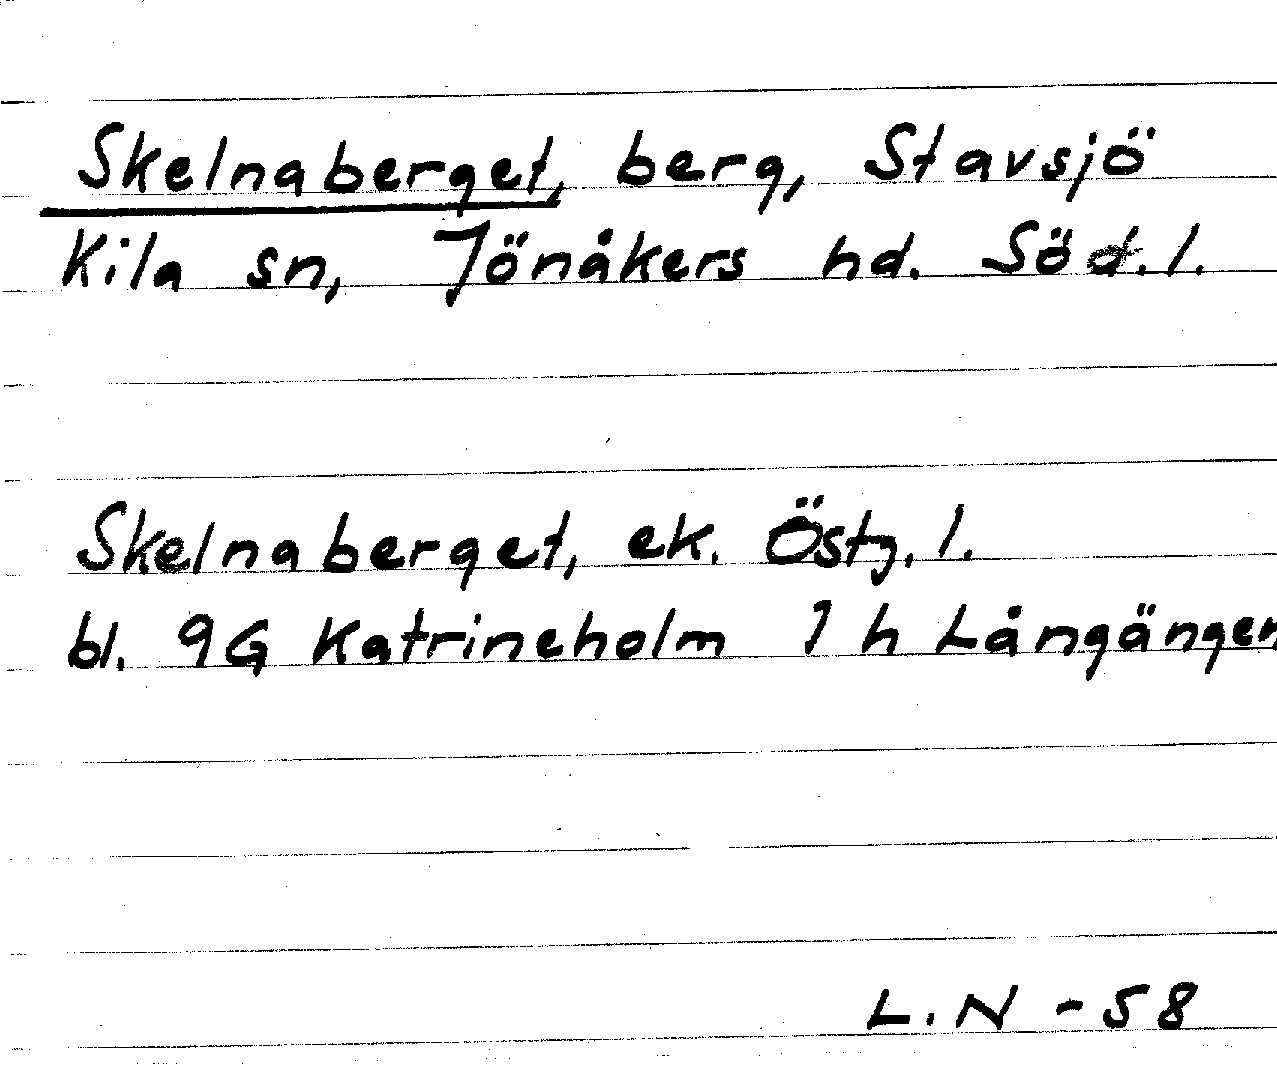 Skelnaberget, berg, Stavsjö
Kila sn, Jönåkers hd. Söd.l.
Skelnaberget, ek. Östg.l.
bl. 9G Katrineholm 1 h Långängen
L.N - 58